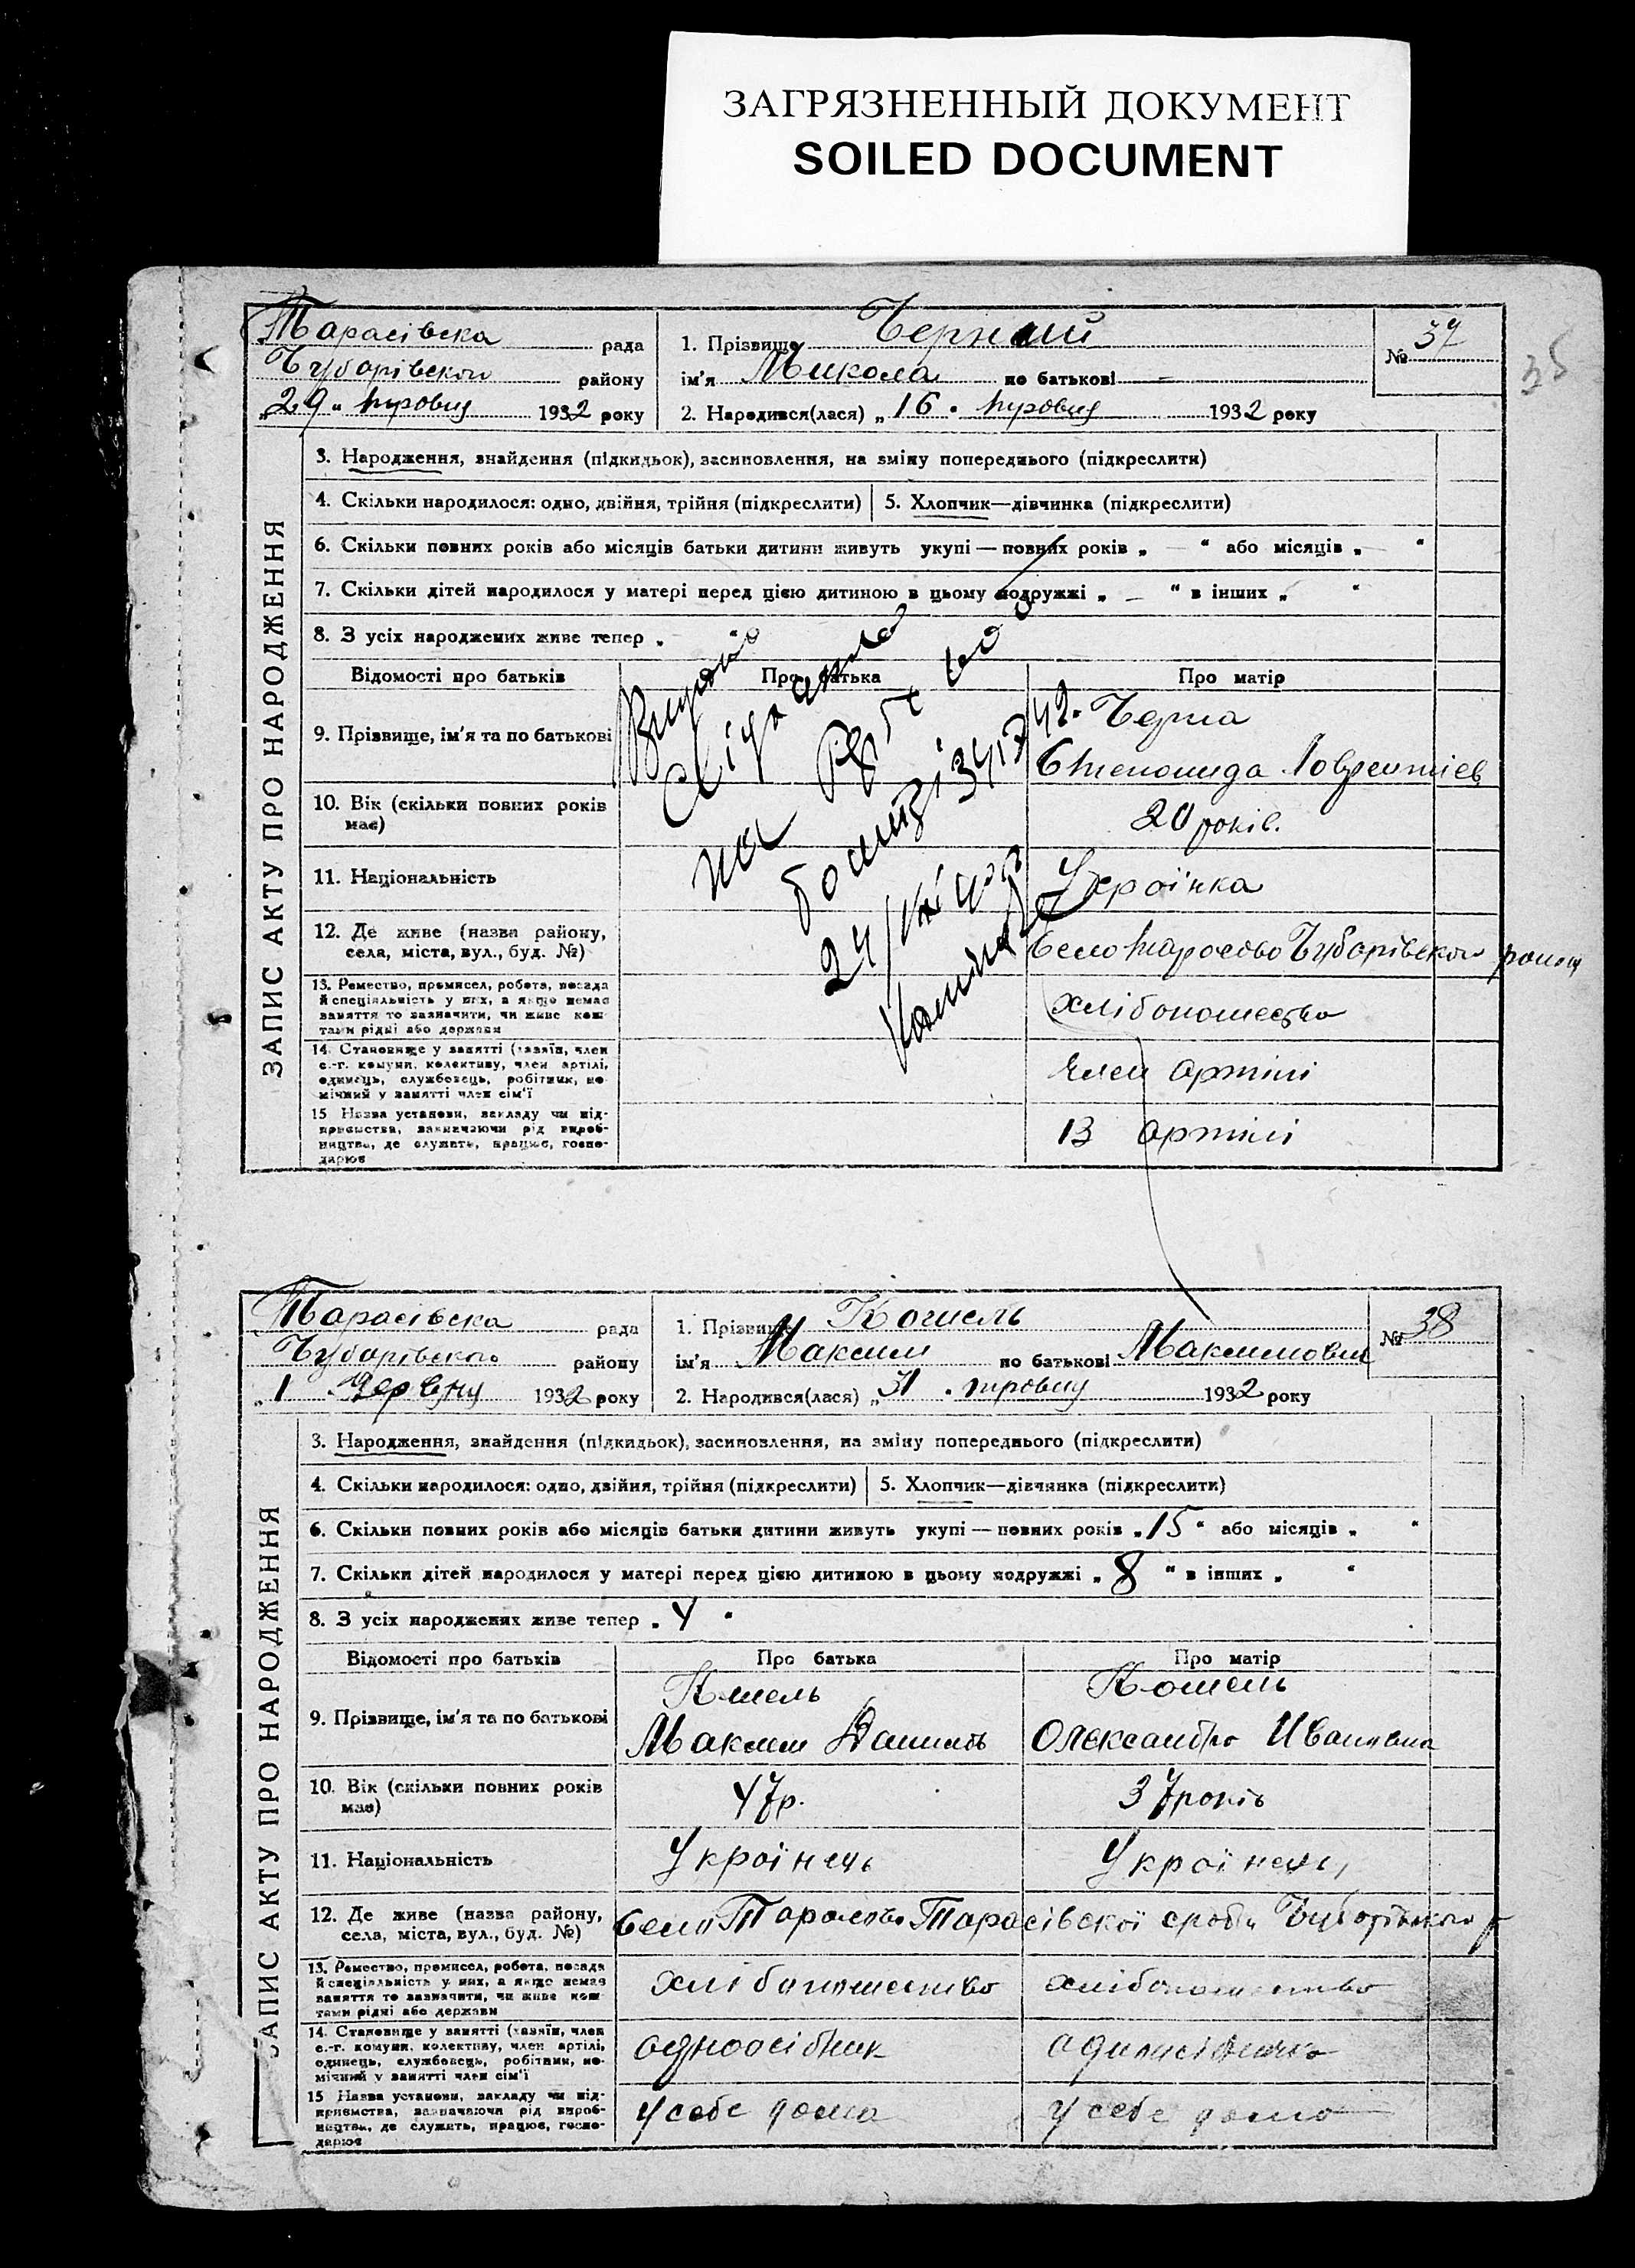 ЗАГРЯЗНЕННЫЙ ДОКУМЕНТ
SOILED DOCUMENT
35
ЗАПИС АКТУ ПРО НАРОДЖЕННЯ
Тарасівска рада
Чубарівского району
„29“ травня 1932 року
1. Прізвище Черний
ім'я Микола по батькові —
№ 37
2. Народився(лася) „16. травня 1932 року
3. Народження, знайдення (підкидьок), засиновлення, на зміну попереднього (підкреслити)
4. Скільки народилося: одно, двійня, трійня (підкреслити) 5. Хлопчик—дівчинка (підкреслити)
6. Скільки повних років або місяців батьки дитини живуть укупі — повних років „ — “ або місяців „ — “
7. Скільки дітей народилося у матері перед цією дитиною в цьому подружжі „ — “ в інших „ “
8. З усіх народжених живе тепер „
Відомості про батьків Про батька Про матір
9. Прізвище, ім'я та по батькові Черна
Степонида
10. Вік (скільки повних років має) 20 років.
11. Національність Україінка
12. Де живе (назва району, села, міста, вул., буд. №) Село Тарасово Чубарівского району
13. Ремество, промисел, робота, посада й спеціяльність у них, а якщо немає заняття то зазначити, чи живе коштами рідні або держави
14. Становище у занятті (хазяїн, член с.-г. комуни, колективу, член артілі, одинець, службовець, робітник, помічний у занятті член сім'ї Член артілі
15 Назва установи, закладу чи підприємства, зазначаючи рід виробництва, де служить, працює, господарює В артілі
на
24/
ЗАПИС АКТУ ПРО НАРОДЖЕННЯ
Тарасівска рада
Чубарівского району
„1 Червня 1932 року
1. Прізвище Кошель
ім'я Максим по батькові Максимович
№ 38
2. Народився(лася) „31. травня 1932 року
3. Народження, знайдення (підкидьок), засиновлення, на зміну попереднього (підкреслити)
4. Скільки народилося: одно, двійня, трійня (підкреслити) 5. Хлопчик—дівчинка (підкреслити)
6. Скільки повних років або місяців батьки дитини живуть укупі — повних років „15“ або місяців „ “
7. Скільки дітей народилося у матері перед цією дитиною в цьому подружжі „8“ в інших „ “
8. З усіх народжених живе тепер „4
Відомості про батьків Про батька Про матір
9. Прізвище, ім'я та по батькові Кшель Кошель
Максим Олександра Иванивна
10. Вік (скільки повних років має) 47р. 37 років
11. Національність Українець Українець
12. Де живе (назва району, села, міста, вул., буд. №) Село Тарасово Тарасівскої Чубарівского р
13. Ремество, промисел, робота, посада й спеціяльність у них, а якщо немає заняття то зазначити, чи живе коштами рідні або держави
14. Становище у занятті (хазяїн, член с.-г. комуни, колективу, член артілі, одинець, службовець, робітник, помічний у занятті член сім'ї одноосібник
15 Назва установи, закладу чи підприємства, зазначаючи рід виробництва, де служить, працює, господарює у себе дома у себе дома